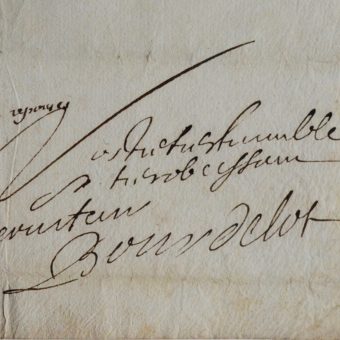 Vostre tres humble
et tres obeissant
serviteur
Bourdelot